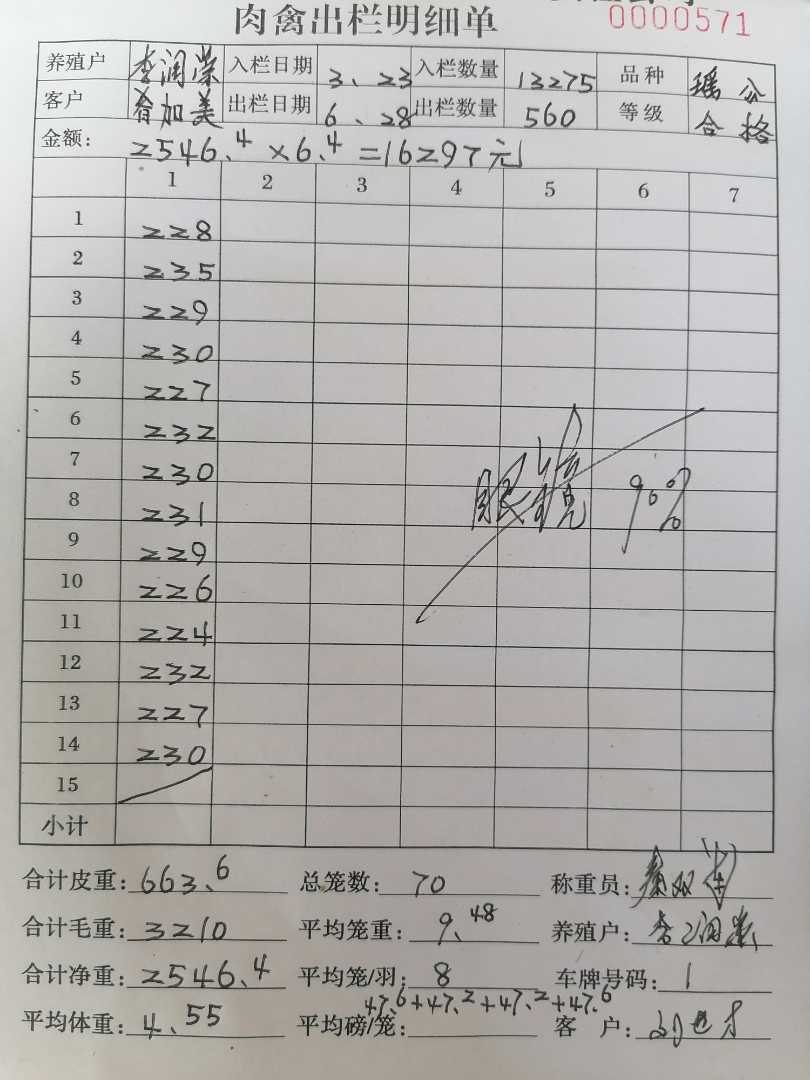 肉禽出栏明细单 0000571
养殖户 李润荣 入栏日期 3、23 入栏数量 13275 品种 瑶公
客户 加美 出栏日期 6、28 出栏数量 560 等级 合格
金额: 2546.4×6.4=16297元
1 2 3 4 5 6 7
1 228
2 235
3 229
4 230
5 227
6 232
7 230
8 231
9 229
10 226
11 224
12 232
13 227
14 230
15
90%
小计
合计皮重: 663.6 总笼数: 70 称重员:
合计毛重: 3210 平均笼重: 9.48 养殖户: 李润荣
合计净重: 2546.4 平均笼/羽: 8 车牌号码: 1
47.6+47.2+47.2+47.6
平均体重: 4.55 平均磅/笼: 客户: